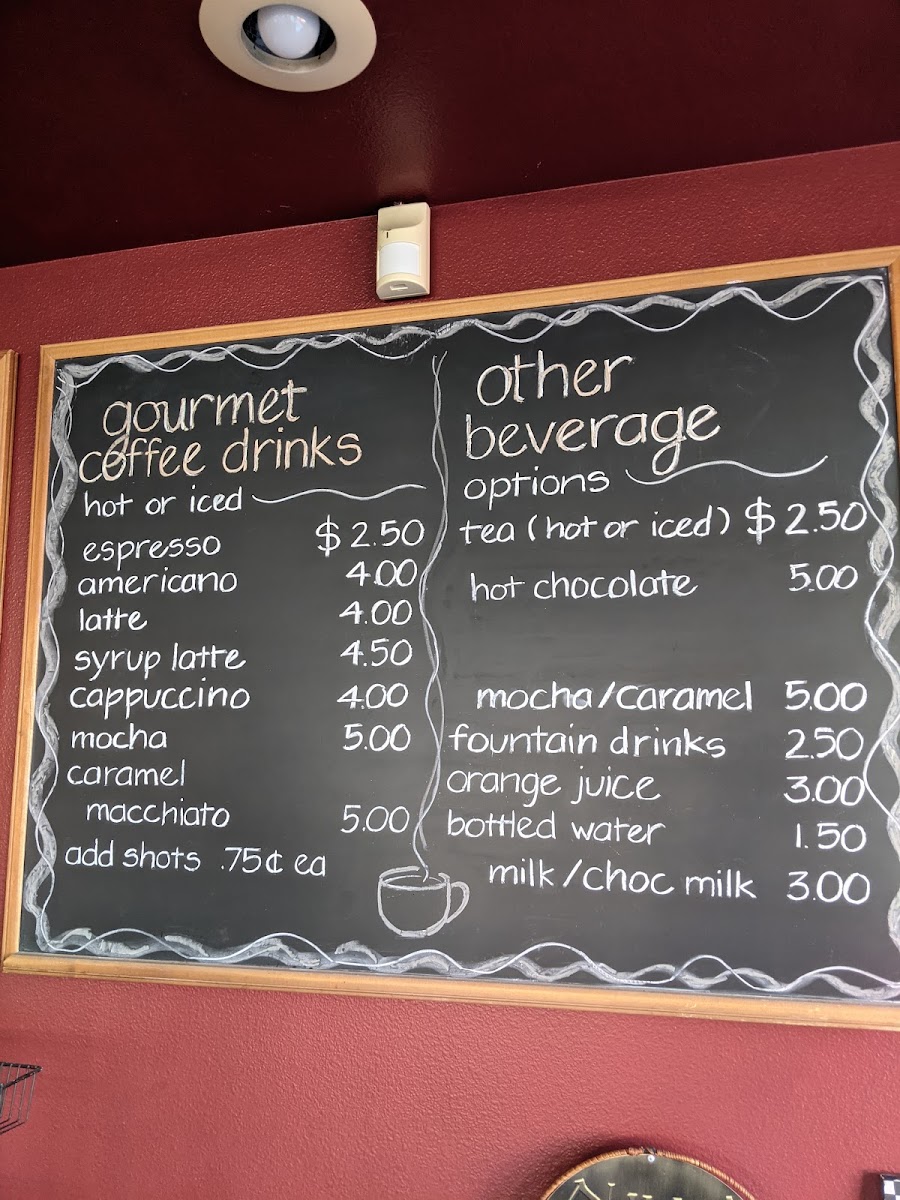 gourmet
coffee drinks
hot or iced
espresso $2.50
americano 4.00
latte 4.00
syrup latte 4.50
cappuccino 4.00
mocha 5.00
caramel
macchiato 5.00
add shots .75¢ ea
other
beverage
options
tea (hot or iced) $2.50
hot chocolate 5.00
mocha/caramel 5.00
fountain drinks 2.50
orange juice 3.00
bottled water 1.50
milk/choc milk 3.00